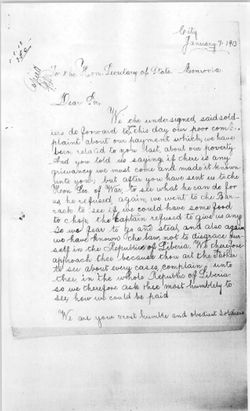 City
January 7. 1913
To the Hon. Secretary of State Monrovia
Dear Sir,
We the undersigned said sold-
iers do forward to this day our poor com-
plaint about our payment which we have
been related to you last, about our poverty.
And you told us saying if there is any
grievancy we must come and made it known
unto you; but after you have sent us to the
Hon Sec. of War, to see what he can do for
us he refused again we went to the Bar-
rack to see if we could have some food
to chop the Captain refused to give us any
So we fear to go and steal, and also again
we have known the law, not to disgrace
self in the Republic of Liberia. We therefore
approach thee because thou art the Father
to see about every cases, complain, unto
thee in the whole Republic of Liberia
so we therefore ask thee most humbly to
see how we could be paid
We are your most humble and obedient Soldiers